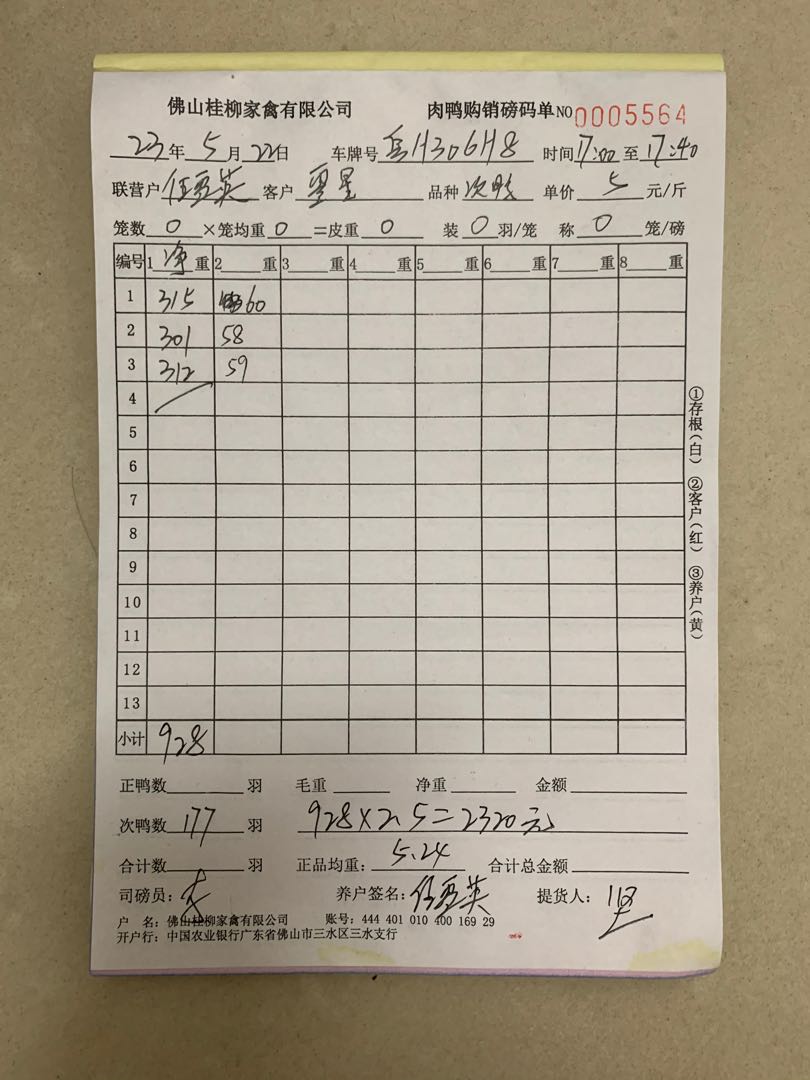 佛山桂柳家禽有限公司 肉鸭购销磅码单 NO 0005564
23年 5月 22日 车牌号 H306H8 时间 17:00 至 17:40
联营户 任雪英 客户 星 品种 次鸭 单价 5 元/斤
笼数 0 ×笼均重 0 =皮重 0 装 0 羽/笼 称 0 笼/磅
编号 1 净 重 2 重 3 重 4 重 5 重 6 重 7 重 8 重
1 315 60
2 301 58
3 312 59
4
5
6
7
8
9
10
11
12
13
小计 928
正鸭数 羽 毛重 净重 金额
次鸭数 177 羽 928×2.5=2320元
合计数 羽 正品均重: 5.24 合计总金额
司磅员: 养户签名: 任雪英 提货人:
户 名: 佛山桂柳家禽有限公司 账号: 444 401 010 400 169 29
开户行: 中国农业银行广东省佛山市三水区三水支行
①存根(白) ②客户(红) ③养户(黄)